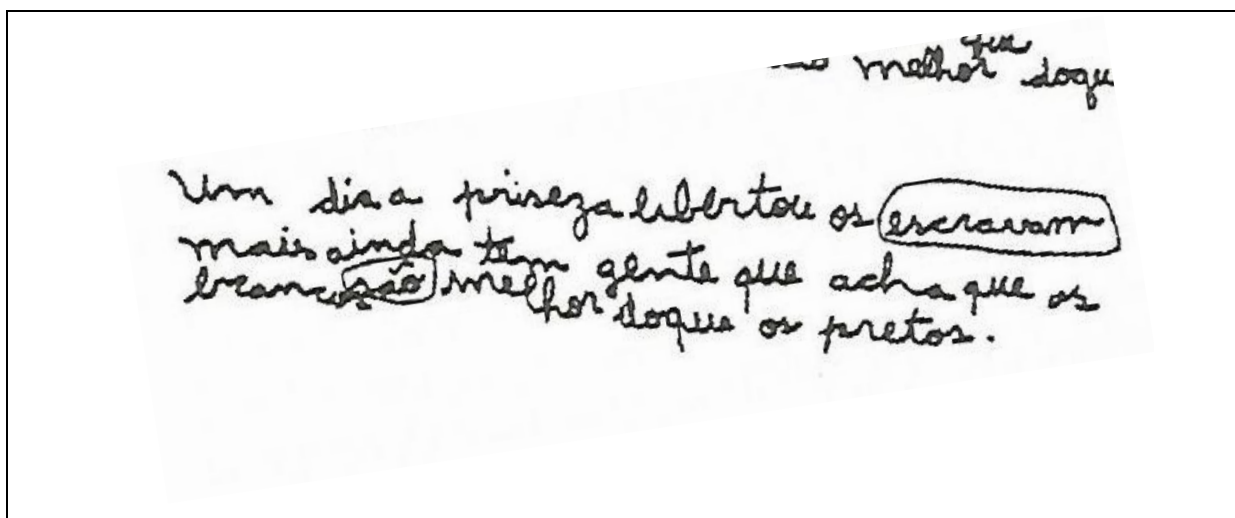 que
melhor doqu
Um dia a priseza libertou os escravam
mais ainda tem gente que acha que os
brancos são melhor doque os pretos.